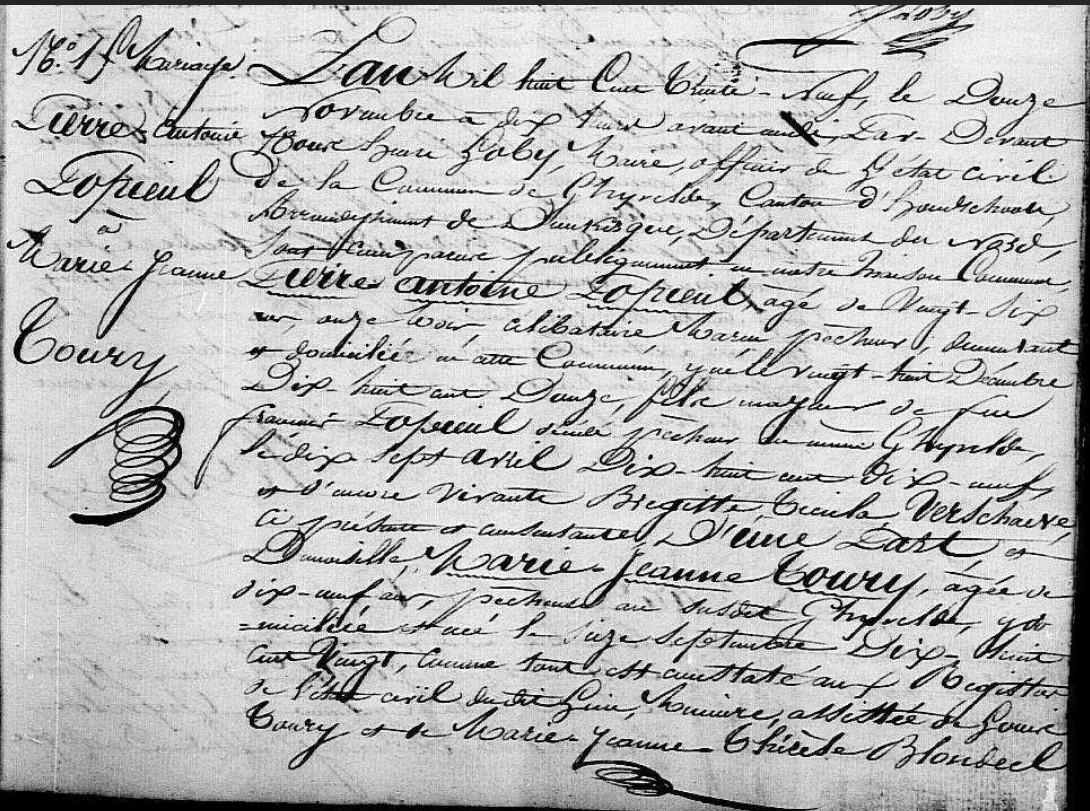 Goby
N.º 15 Mariage
Pierre Antoine
Lopieul
à
Marie Jeanne
Toury
L'an Mil huit Cent Trente-Neuf, le Douze
Novembre à dix heures avant midi, Par-Devant
Nous Goby, Maire, officier de l'état civil
De la Commune de Ghyvelde, Canton d'hondschoote,
Arrondissement de Dunkerque, Département du Nord,
Sont comparus publiquement en notre maison Commune,
Pierre antoine Lopieul, agé de Vingt-Six
ans, onze mois célibataire Marin pêcheur, demeurant
et domicilié en cette Commune, y né le vingt-huit Décembre
Dix-huit cent Douze, fils majeur de feu
François Lopieul décédé pêcheur au même Ghyvelde,
le dix sept avril Dix-huit cent dix-neuf,
et d'encore Vivante Brigitte Cécile Verschaeve,
ci présente et consentante, D'une Part et
Demoiselle, Marie Jeanne Toury, âgée de
dix-neuf ans, pêcheuse au susdit Ghyvelde, y do
=miciliée et née le Seize Septembre Dix-huit
cent Vingt, comme tout est constaté aux Registres
de l'état civil du dit lieu, Mineure, assistée de Louis
Toury et de Marie Jeanne Thérèse Blondeel